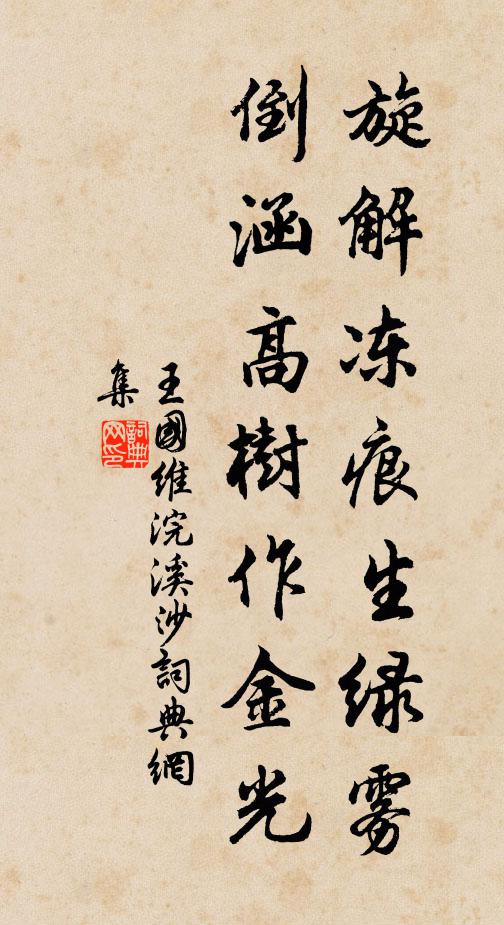 旋解冻痕生绿雾
倒涵高樹作金光
王國維浣溪沙詞典網
集
詞典网印